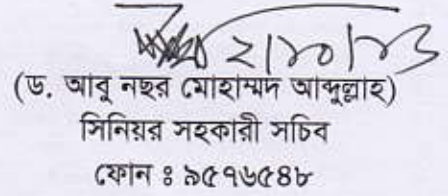 ২/১০/১৩
(ড. আবু নছর মোহাম্মদ আব্দুল্লাহ)
সিনিয়র সহকারী সচিব
ফোন ঃ ৯৫৭৬৫৪৮